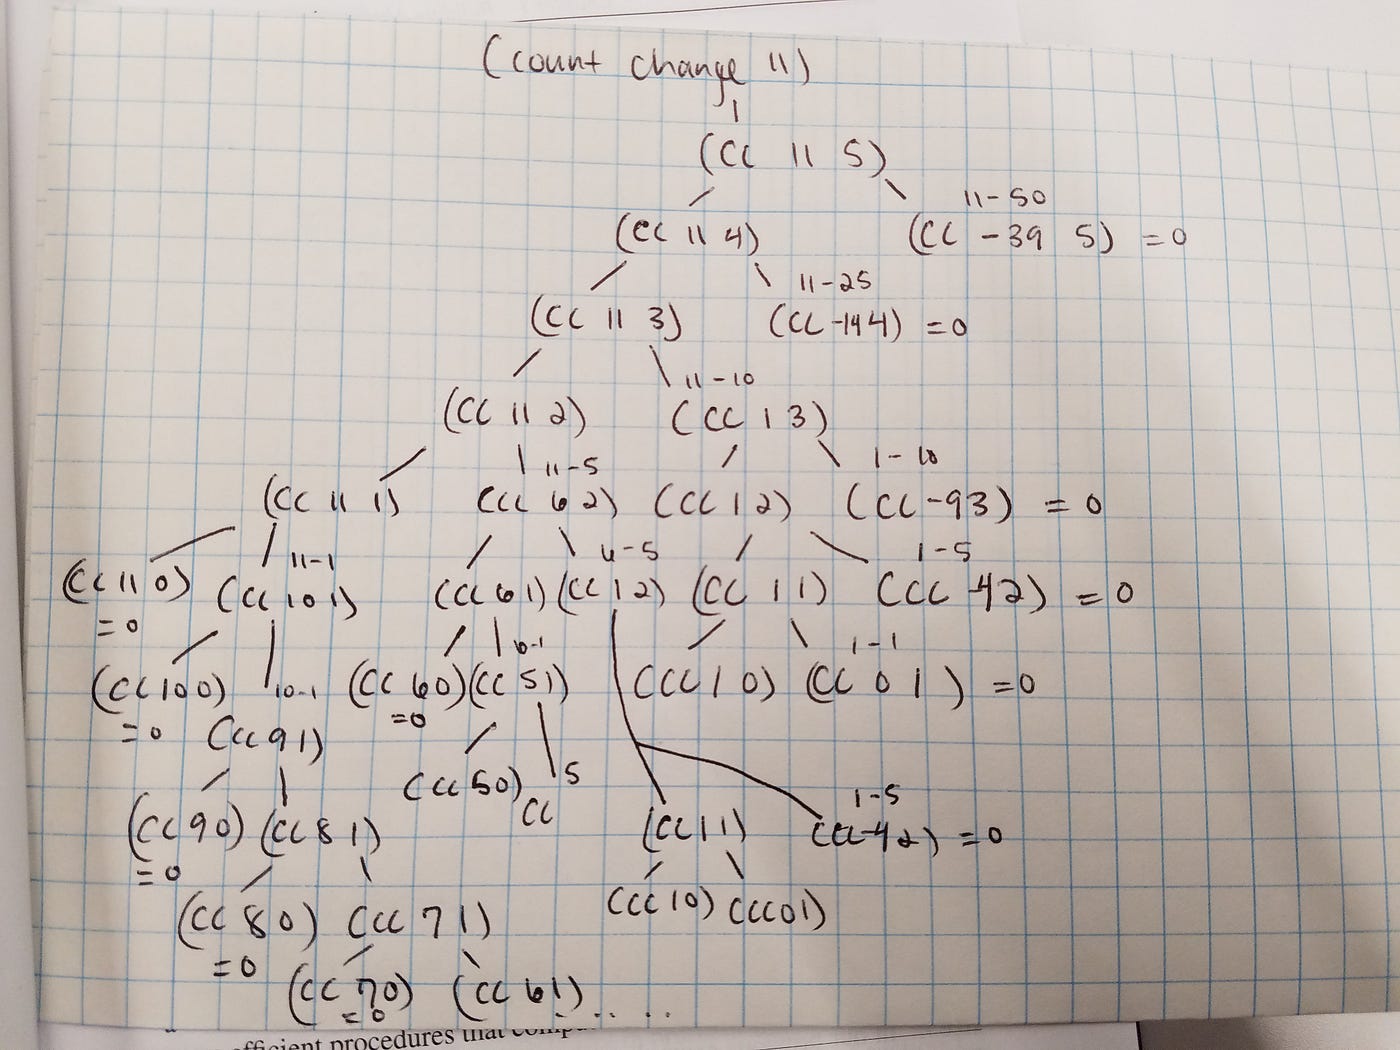 (count change 11)
(CC 11 5)
11-50
(CC 11 4) (CC -39 5) =0
11-25
(CC 11 3) (CC -14 4) =0
11-10
(CC 11 2) (CC 1 3)
11-5 1-10
(CC 11 1) (CC 6 2) (CC 1 2) (CC -9 3) =0
11-1 6-5 1-5
(CC 11 0) (CC 10 1) (CC 6 1) (CC 1 2) (CC 1 1) (CC -4 2) =0
=0 6-1 1-1
(CC 10 0) 10-1 (CC 6 0) (CC 5 1) (CC 1 0) (CC 0 1) =0
=0 (CC 9 1) =0
(CC 5 0) CC 5
1-5
(CC 9 0) (CC 8 1) (CC 1 1) (CC -4 2) =0
=0
(CC 8 0) (CC 7 1) (CC 1 0) (CC 0 1)
=0
(CC 7 0) (CC 6 1) . . . .
=0
efficient procedures that